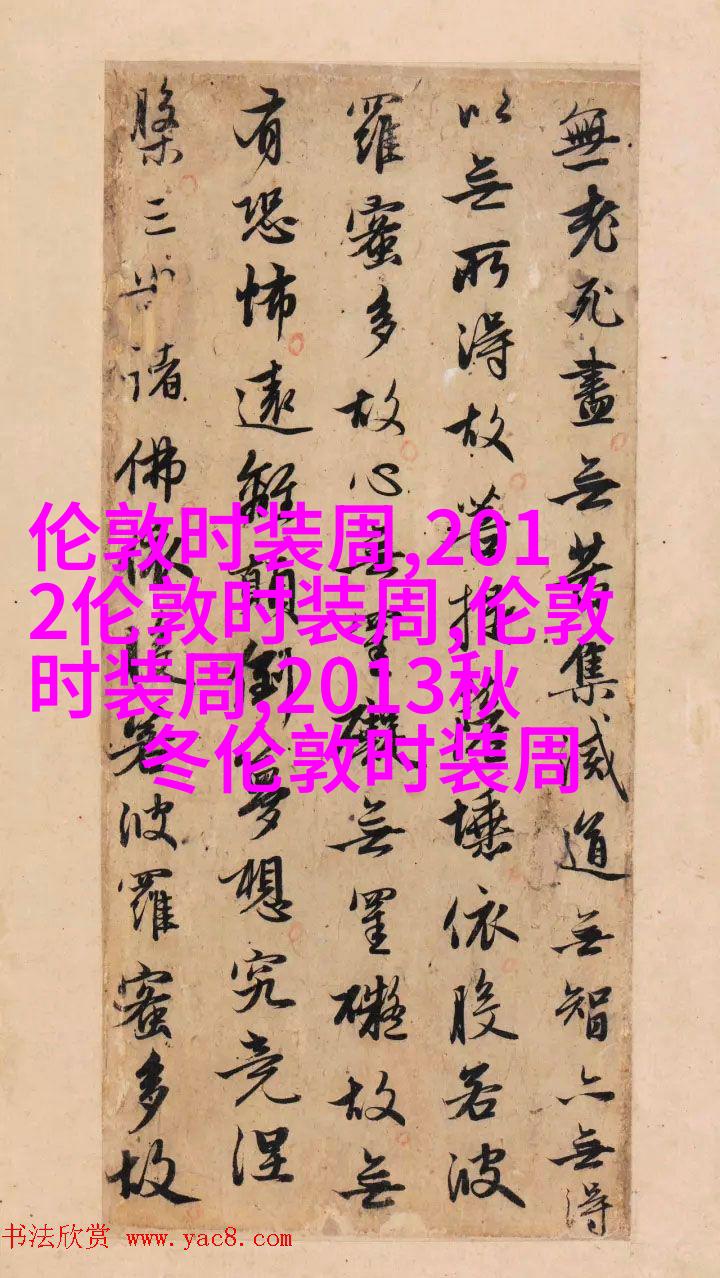 無老死盡無苦集滅道無智亦無得
以無所得故菩提薩埵依般若波
羅蜜多故心無罣礙無罣礙故無
有恐怖遠離顛倒夢想究竟涅
槃三世諸佛依般若波羅蜜多故
伦敦时装周,201
2伦敦时装周,伦敦
时装周,2013秋
冬伦敦时装周
书法欣赏 www.yac8.com